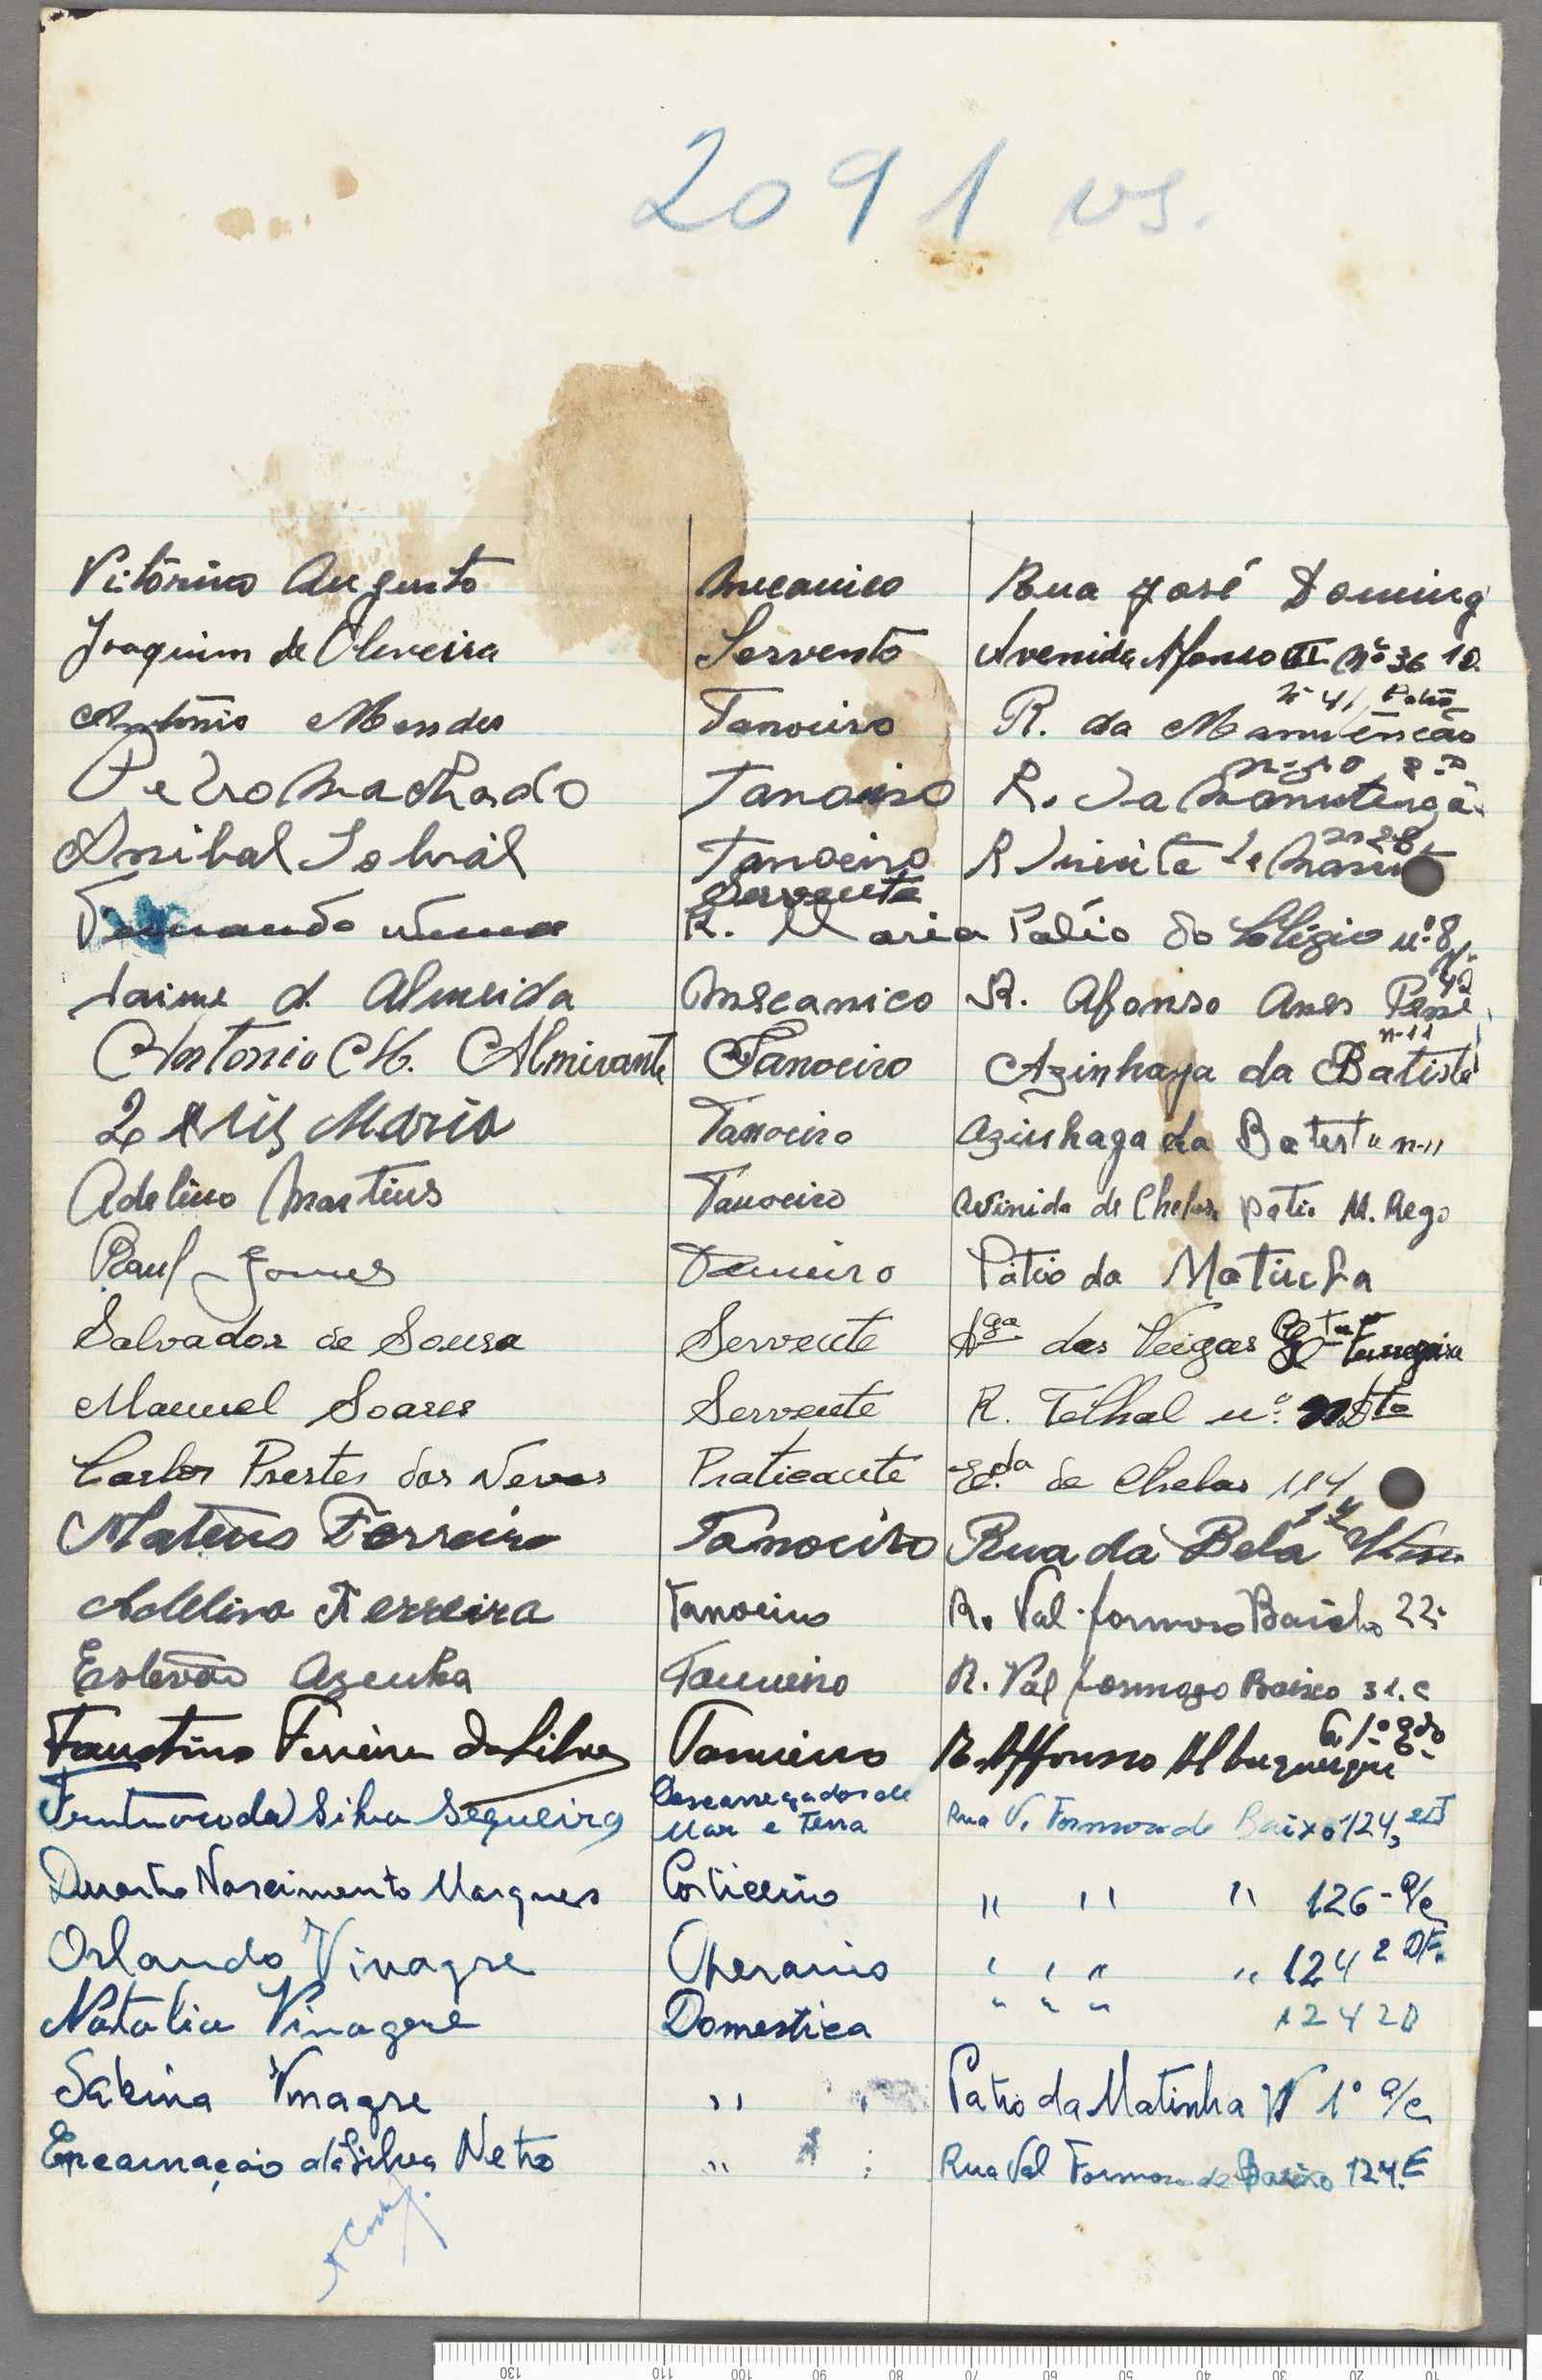 2091 vs.
Vitórino Augusto mecanico Rua José Doming
Joaquim de Oliveira Servente Avenida Afonso III Nº 36 1 D.
António Mendes Tanoeiro R. da Manutenção Nº 41 Patio
Pedro Machado Tanoeiro R. Da Manutençã
Anibal Sobral Tanoeiro R
Fernando Nunes Servente R. Maria Patio do Colégio nº 8
Jaime d. Almeida Mecanico R. Afonso Anes Pene 42
Antonio M. Almirante Tanoeiro Azinhaga da Batista n-11
Luis Maria Tanoeiro Azinhaga da Batista n-11
Adelino Martins Tanoeiro Avinida de Chelas patio M. Rego
Raul Gomes Tanueiro Pátio da Matinha
Salvador de Sousa Servente Aga das Veigas
Manuel Soares Servente R. Telhal nº
Carlos Prestes dos Neves Praticante Eda de Chelas 114
Mateus Ferreira Tanoeiro Rua da Bela Vista
Adelino Ferreira Tanoeiro R. Val-formoso Baicho 22
Estevão Azenha Tanueiro R. Val formozo Baixo 31.C
Faustino Ferreira da Silva Tanueiro R. Affonso Albuquerque 6, 1º
da Silva Sequeira Descarregador de Mar e Terra Rua V. Formoso de Baixo 124,
Duarte Nascimento Marques Corticeiro " " " 126-
Orlando Vinagre Operario " " " " 124 2
Natalia Vinagere Domestica " " " 124 2D
Sabina Vinagre " " Patio da Matinha Nº 1º
Encarnação da Silva Neto " " Rua Val Formoso de Baixo 124.E